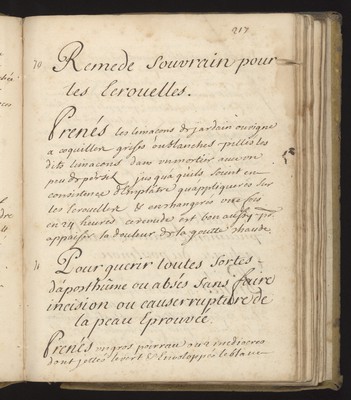 217
70 Remede Souvrain pour
les Ecrouelles.
Prenés les limacons de jardain ou vigne
a coquilles grises ou blanches pillés les
dits limacons dans un mortier avec un
peu de persil jus qua quils soient en
consistence d'Emplâtre quappliquerés sur
les Ecrouelles & en changres une fois
en 24 heures ce remede est bon aussy pr
appaiser la douleur de la goutte chaude
71 Pour guerir toutes sortes
d'aposthûme ou absés sans faire
incision ou causer rupture de
la peau Eprouvée
Prenés un gros poirrau ou 2 mediocres
dont jettés le vert & Enveloppés le blanc